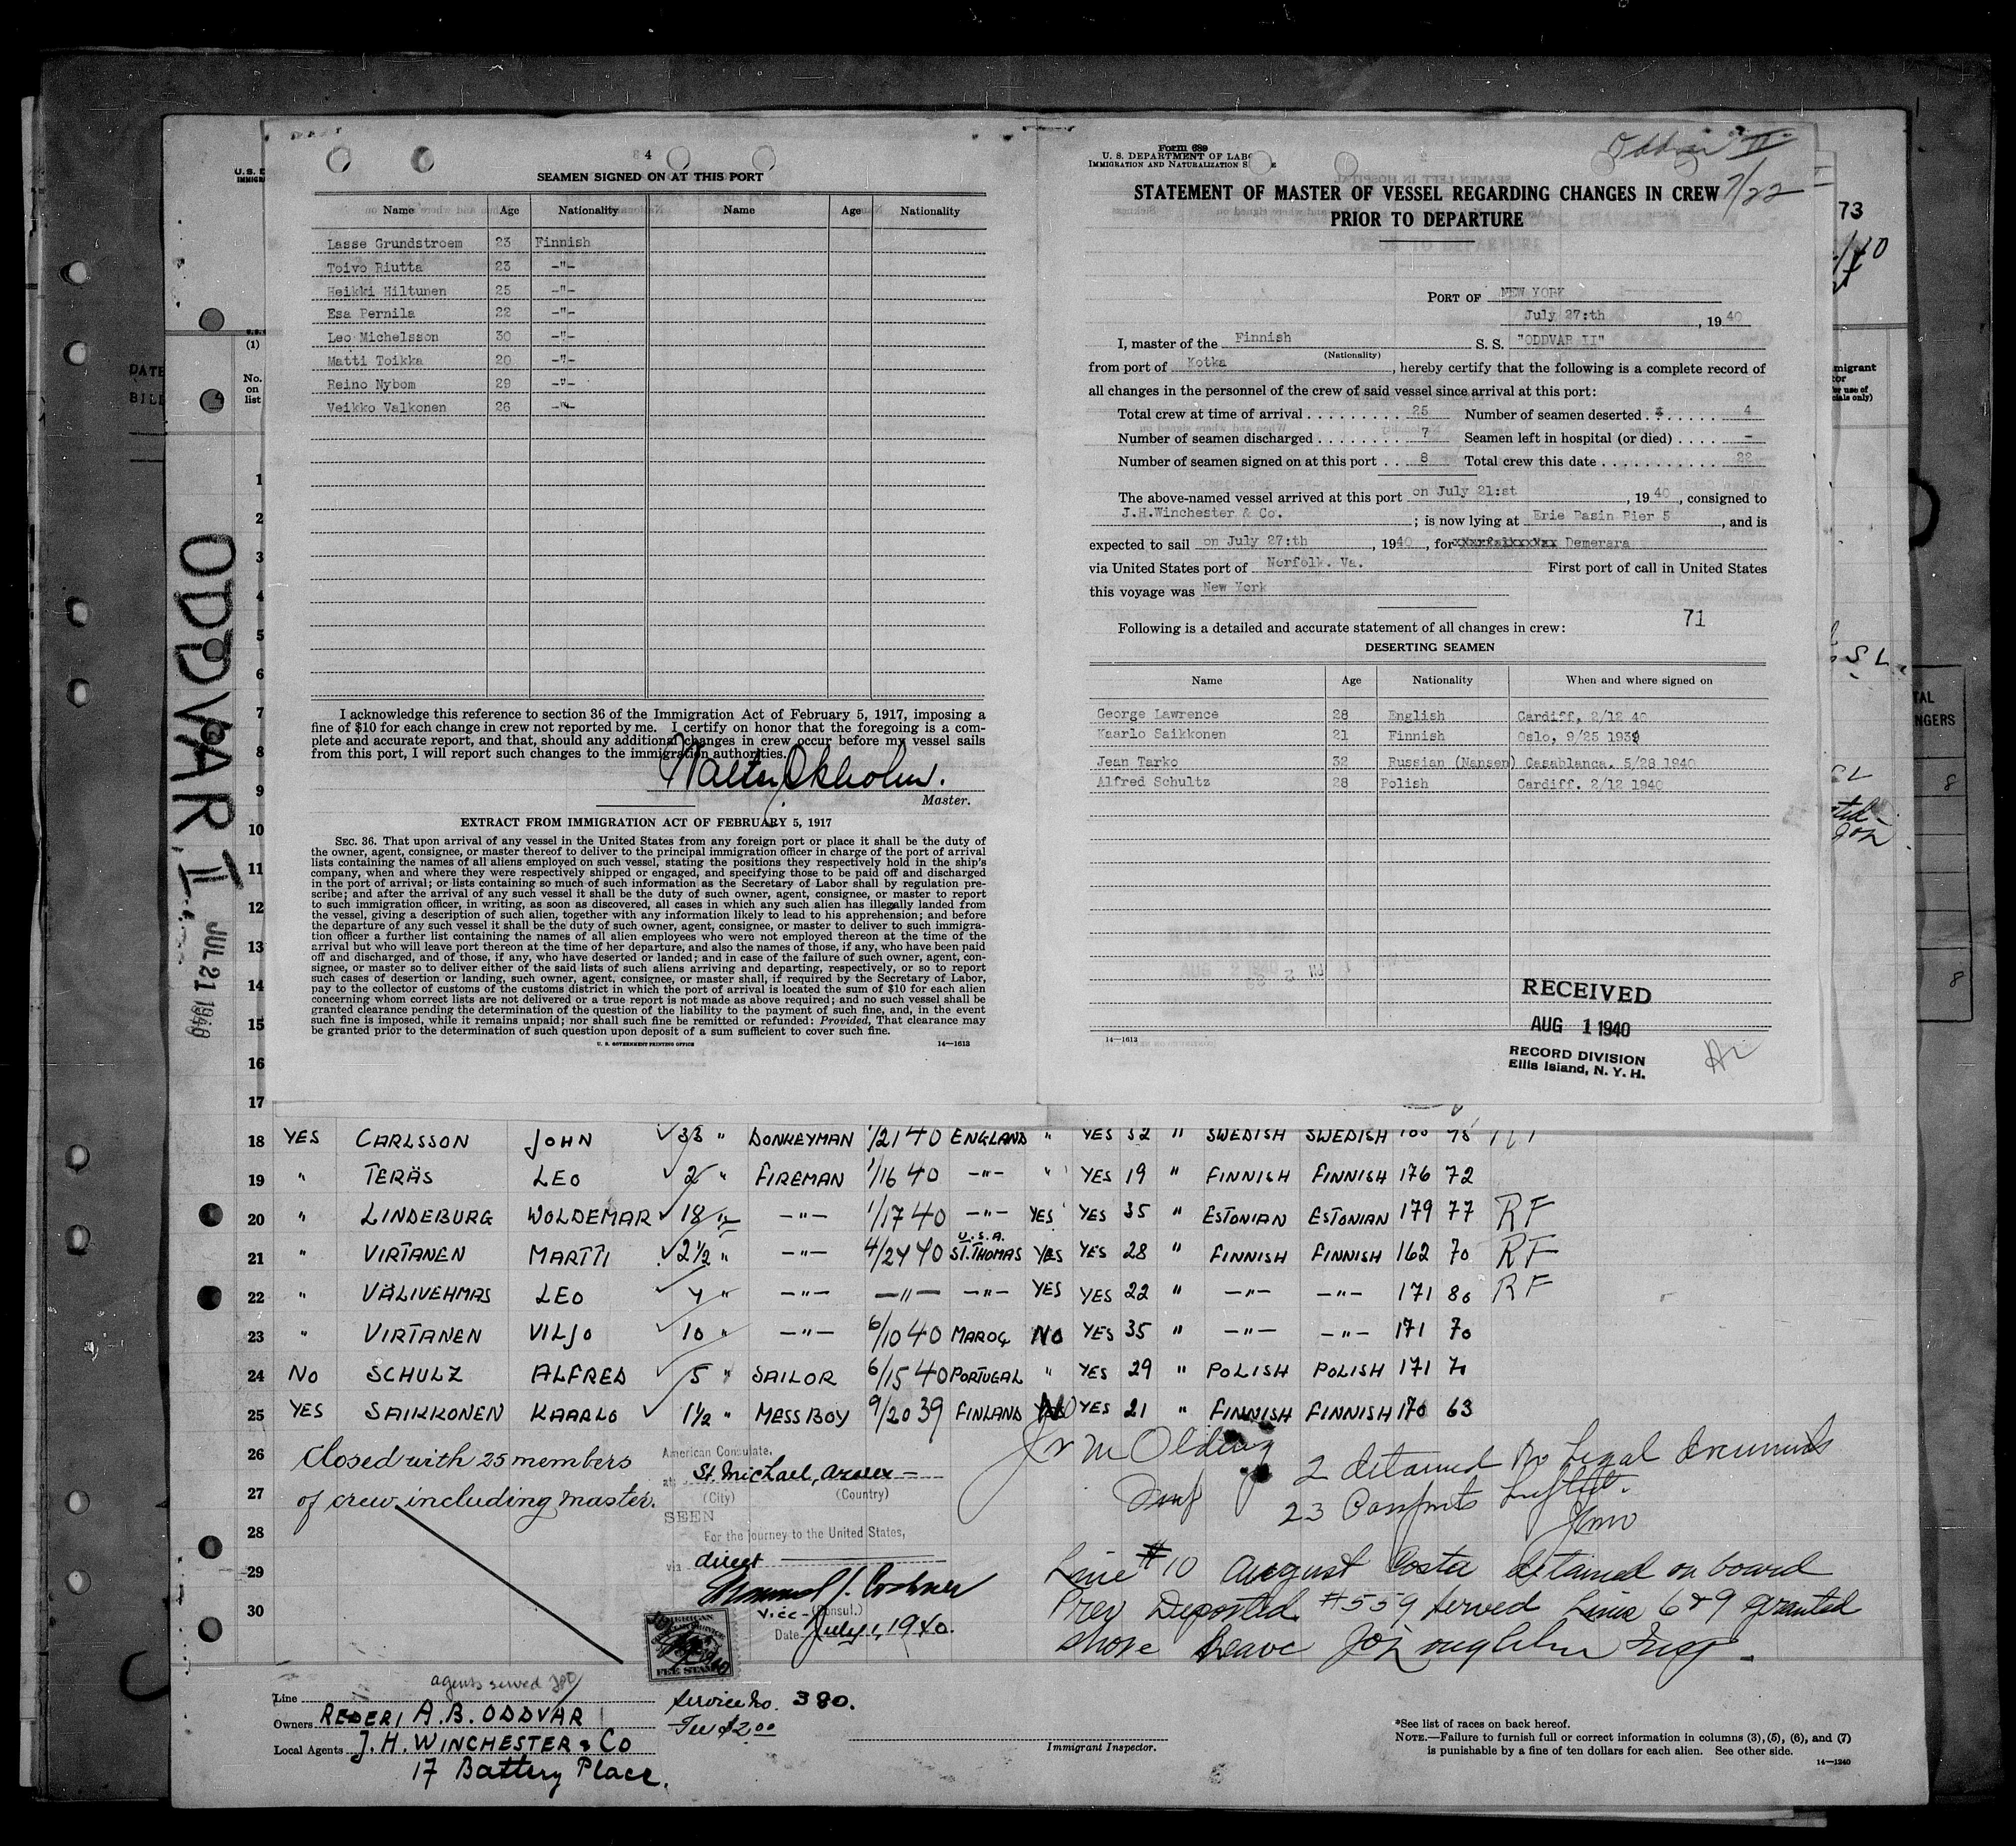 4
SEAMEN SIGNED ON AT THIS PORT
Name Age Nationality Name Age Nationality
Lasse Grundstroem 23 Finnish
Toivo Riutta 23 -"-
Heikki Hiltunen 25 -"-
Esa Pernila 22 -"-
Leo Michelsson 30 -"-
Matti Toikka 20 -"-
Reino Nybom 29 -"-
Veikko Valkonen 26 -"-
I acknowledge this reference to section 36 of the Immigration Act of February 5, 1917, imposing a
fine of $10 for each change in crew not reported by me. I certify on honor that the foregoing is a com-
plete and accurate report, and that, should any additional changes in crew occur before my vessel sails
from this port, I will report such changes to the immigration authorities.
Walter Okholm.
Master.
EXTRACT FROM IMMIGRATION ACT OF FEBRUARY 5, 1917
SEC. 36. That upon arrival of any vessel in the United States from any foreign port or place it shall be the duty of
the owner, agent, consignee, or master thereof to deliver to the principal immigration officer in charge of the port of arrival
lists containing the names of all aliens employed on such vessel, stating the positions they respectively hold in the ship's
company, when and where they were respectively shipped or engaged, and specifying those to be paid off and discharged
in the port of arrival; or lists containing so much of such information as the Secretary of Labor shall by regulation pre-
scribe; and after the arrival of any such vessel it shall be the duty of such owner, agent, consignee, or master to report
to such immigration officer, in writing, as soon as discovered, all cases in which any such alien has illegally landed from
the vessel, giving a description of such alien, together with any information likely to lead to his apprehension; and before
the departure of any such vessel it shall be the duty of such owner, agent, consignee, or master to deliver to such immigra-
tion officer a further list containing the names of all alien employees who were not employed thereon at the time of the
arrival but who will leave port thereon at the time of her departure, and also the names of those, if any, who have been paid
off and discharged, and of those, if any, who have deserted or landed; and in case of the failure of such owner, agent, con-
signee, or master so to deliver either of the said lists of such aliens arriving and departing, respectively, or so to report
such cases of desertion or landing, such owner, agent, consignee, or master shall, if required by the Secretary of Labor,
pay to the collector of customs of the customs district in which the port of arrival is located the sum of $10 for each alien
concerning whom correct lists are not delivered or a true report is not made as above required; and no such vessel shall be
granted clearance pending the determination of the question of the liability to the payment of such fine, and, in the event
such fine is imposed, while it remains unpaid; nor shall such fine be remitted or refunded: Provided, That clearance may
be granted prior to the determination of such question upon deposit of a sum sufficient to cover such fine.
U. S. GOVERNMENT PRINTING OFFICE 14—1613
Form 689
U. S. DEPARTMENT OF LABO
IMMIGRATION AND NATURALIZATION S
Oddvar II
7/22
STATEMENT OF MASTER OF VESSEL REGARDING CHANGES IN CREW
PRIOR TO DEPARTURE
PORT OF NEW YORK
July 27:th, 1940
I, master of the Finnish S. S. "ODDVAR II"
(Nationality)
from port of Kotka, hereby certify that the following is a complete record of
all changes in the personnel of the crew of said vessel since arrival at this port:
Total crew at time of arrival 25 Number of seamen deserted 4
Number of seamen discharged 7 Seamen left in hospital (or died) -
Number of seamen signed on at this port 8 Total crew this date 22
The above-named vessel arrived at this port on July 21:st, 1940, consigned to
J.H.Winchester & Co. ; is now lying at Erie Basin Pier 5, and is
expected to sail on July 27:th, 1940, for Demerara
via United States port of Norfolk. Va. First port of call in United States
this voyage was New York
71
Following is a detailed and accurate statement of all changes in crew:
DESERTING SEAMEN
Name Age Nationality When and where signed on
George Lawrence 28 English Cardiff, 2/12 40
Kaarlo Saikkonen 21 Finnish Oslo, 9/25 1939
Jean Tarko 32 Russian (Nansen) Casablanca. 5/28 1940
Alfred Schultz 28 Polish Cardiff. 2/12 1940
RECEIVED
AUG 1 1940
RECORD DIVISION
Ellis Island, N. Y. H.
14—1613
73
ODDVAR II
JUL 21 1940
(1)
No.
on
list
1
2
3
4
5
6
7
8
9
10
11
12
13
14
15
16
17
18 YES CARLSSON JOHN 33 " DONKEYMAN 1/21 40 ENGLAND " YES 52 " SWEDISH SWEDISH
19 " TERÄS LEO 2 " FIREMAN 1/16 40 -"- " YES 19 " FINNISH FINNISH 176 72
20 " LINDEBURG WOLDEMAR 18 " -"- 1/17 40 -"- YES YES 35 " ESTONIAN ESTONIAN 179 77 RF
21 " VIRTANEN MARTTI 2½ " -"- 4/24 40 U.S.A. ST.THOMAS YES YES 28 " FINNISH FINNISH 162 70 RF
22 " VÄLIVEHMAS LEO 4 " -"- -"- -"- YES YES 22 " -"- -"- 171 80 RF
23 " VIRTANEN VILJO 10 " -"- 6/10 40 MAROC NO YES 35 " -"- -"- 171 70
24 NO SCHULZ ALFRED 5 " SAILOR 6/15 40 PORTUGAL " YES 29 " POLISH POLISH 171 71
25 YES SAIKKONEN KAARLO 1½ " MESSBOY 9/20 39 FINLAND NO YES 21 " FINNISH FINNISH 170 63
26
27
28
29
30
Closed with 25 members
of crew including master.
American Consulate,
at St. Michael, Azores
(City) (Country)
SEEN
For the journey to the United States,
via direct
Vice-(Consul.)
Date July 1, 1940.
AMERICAN
FEE STAMP
Service No. 380.
Fee $2.00
2 detained no legal documents
23 Passports
Line #10 August Costa detained on board
Prev Deported. #559 served Lines 6 & 9 granted
shore leave
agents served
Line
Owners REDERI A.B. ODDVAR
Local Agents J. H. WINCHESTER & CO
17 Battery Place.
Immigrant Inspector.
*See list of races on back hereof.
NOTE.—Failure to furnish full or correct information in columns (3), (5), (6), and (7)
is punishable by a fine of ten dollars for each alien. See other side.
14—1240